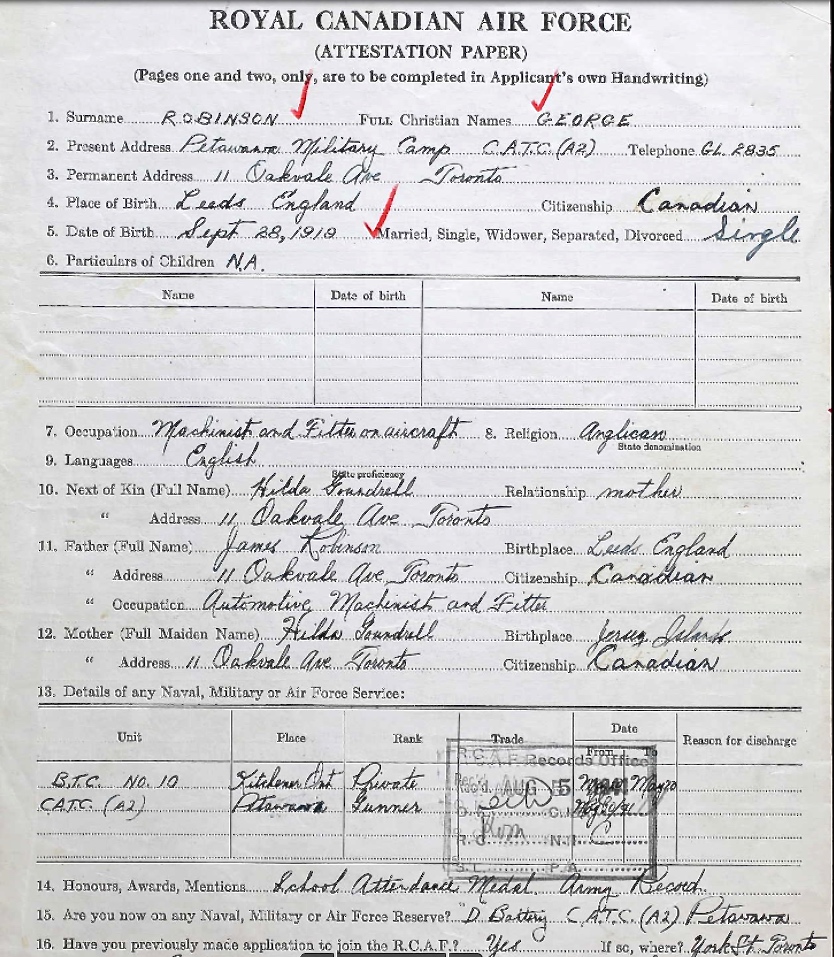 ROYAL CANADIAN AIR FORCE
(ATTESTATION PAPER)
(Pages one and two, only, are to be completed in Applicant's own Handwriting)
1. Surname ROBINSON FULL Christian Names GEORGE
2. Present Address Petawawa Military Camp C.A.T.C. (A2) Telephone GL. 2835
3. Permanent Address 11 Oakvale Ave Toronto
4. Place of Birth Leeds England Citizenship Canadian
5. Date of Birth Sept 28, 1919 Married, Single, Widower, Separated, Divorced Single
6. Particulars of Children N.A.
Name Date of birth Name Date of birth
7. Occupation Machinist and Fitter on aircraft 8. Religion Anglican
State denomination
9. Languages English
State proficiency
10. Next of Kin (Full Name) Hilda Goundrell Relationship mother
" Address 11 Oakvale Ave Toronto
11. Father (Full Name) James Robinson Birthplace Leeds England
" Address 11 Oakvale Ave Toronto Citizenship Canadian
" Occupation Automotive Machinist and Fitter
12. Mother (Full Maiden Name) Hilda Goundrell Birthplace Jersey Islands
" Address 11 Oakvale Ave Toronto Citizenship Canadian
13. Details of any Naval, Military or Air Force Service:
Unit Place Rank Trade Date Reason for discharge
From To
R.C.A.F. Records Office
B.T.C. NO. 10 Kitchener Ont Private
Rec'd. AUG 5
C.A.T.C. (A2) Petawawa Gunner
14. Honours, Awards, Mentions School Attendance Medal. Army Record.
15. Are you now on any Naval, Military or Air Force Reserve? "D Battery C.A.T.C. (A2) Petawawa
16. Have you previously made application to join the R.C.A.F.? Yes If so, where? York St. Toronto